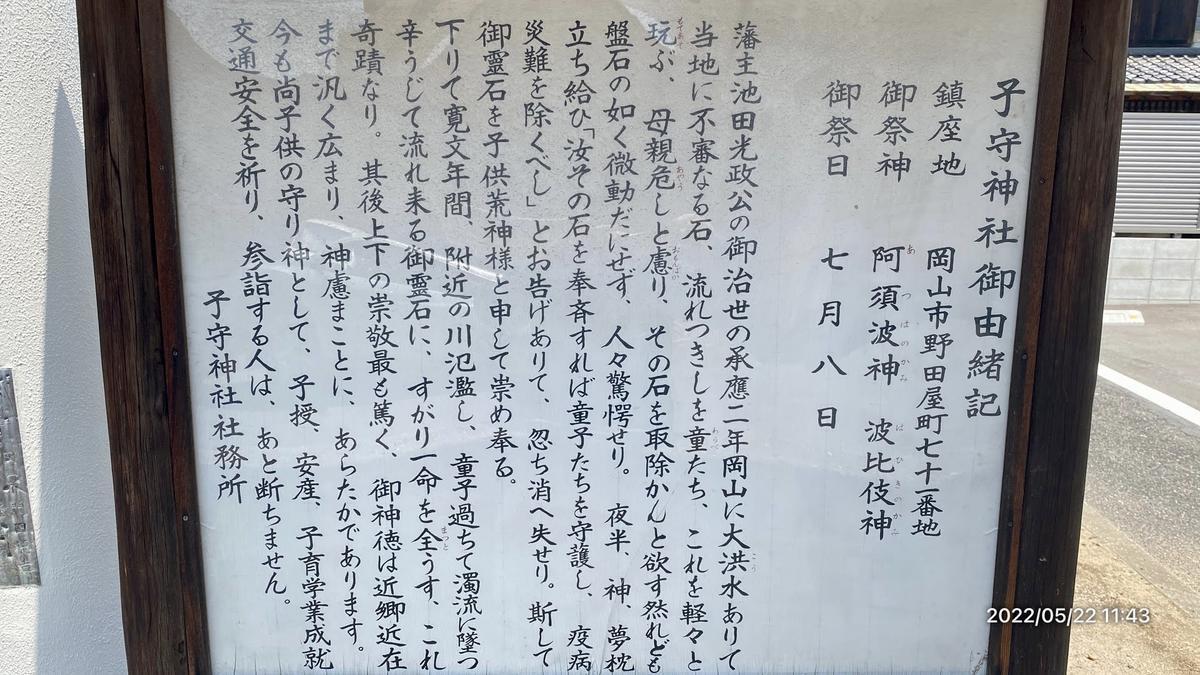 子守神社御由緒記
鎮座地　岡山市野田屋町七十一番地
御祭神　阿須波神　波比伎神
御祭日　七月八日
藩主池田光政公の御治世の承應二年岡山に大洪水ありて
当地に不審なる石、流れつきしを童たち、これを軽々と
玩ぶ、母親危しと慮り、その石を取除かんと欲す然れども
盤石の如く微動だにせず、人々驚愕せり。夜半、神、夢枕
立ち給ひ「汝その石を奉斉すれば童子たちを守護し、疫病
災難を除くべし」とお告げありて、忽ち消へ失せり。斯して
御霊石を子供荒神様と申して崇め奉る。
下りて寛文年間、附近の川氾濫し、童子過ちて濁流に墜つ
辛うじて流れ来る御霊石に、すがり一命を全うす、これ
奇蹟なり。其後上下の崇敬最も篤く、御神徳は近郷近在
まで汎く広まり、神慮まことに、あらたかであります。
今も尚子供の守り神として、子授、安産、子育学業成就
交通安全を祈り、参詣する人は、あと断ちません。
子守神社社務所
2022/05/22 11:43